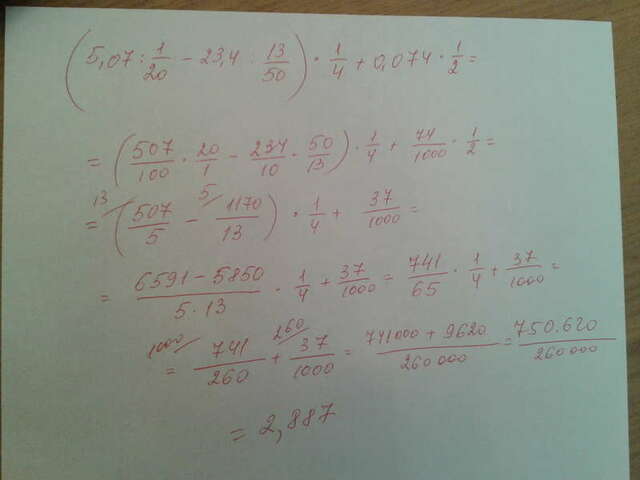 (5,07 : 1/20 − 23,4 : 13/50) · 1/4 + 0,074 · 1/2 =
= (507/100 · 20/1 − 234/10 · 50/13) · 1/4 + 74/1000 · 1/2 =
= (13/ 507/5 − 5/ 1170/13) · 1/4 + 37/1000 =
= (6591 − 5850)/(5 · 13) · 1/4 + 37/1000 = 741/65 · 1/4 + 37/1000 =
= 1000/ 741/260 + 260/ 37/1000 = (741000 + 9620)/260 000 = 750.620/260 000
= 2,887